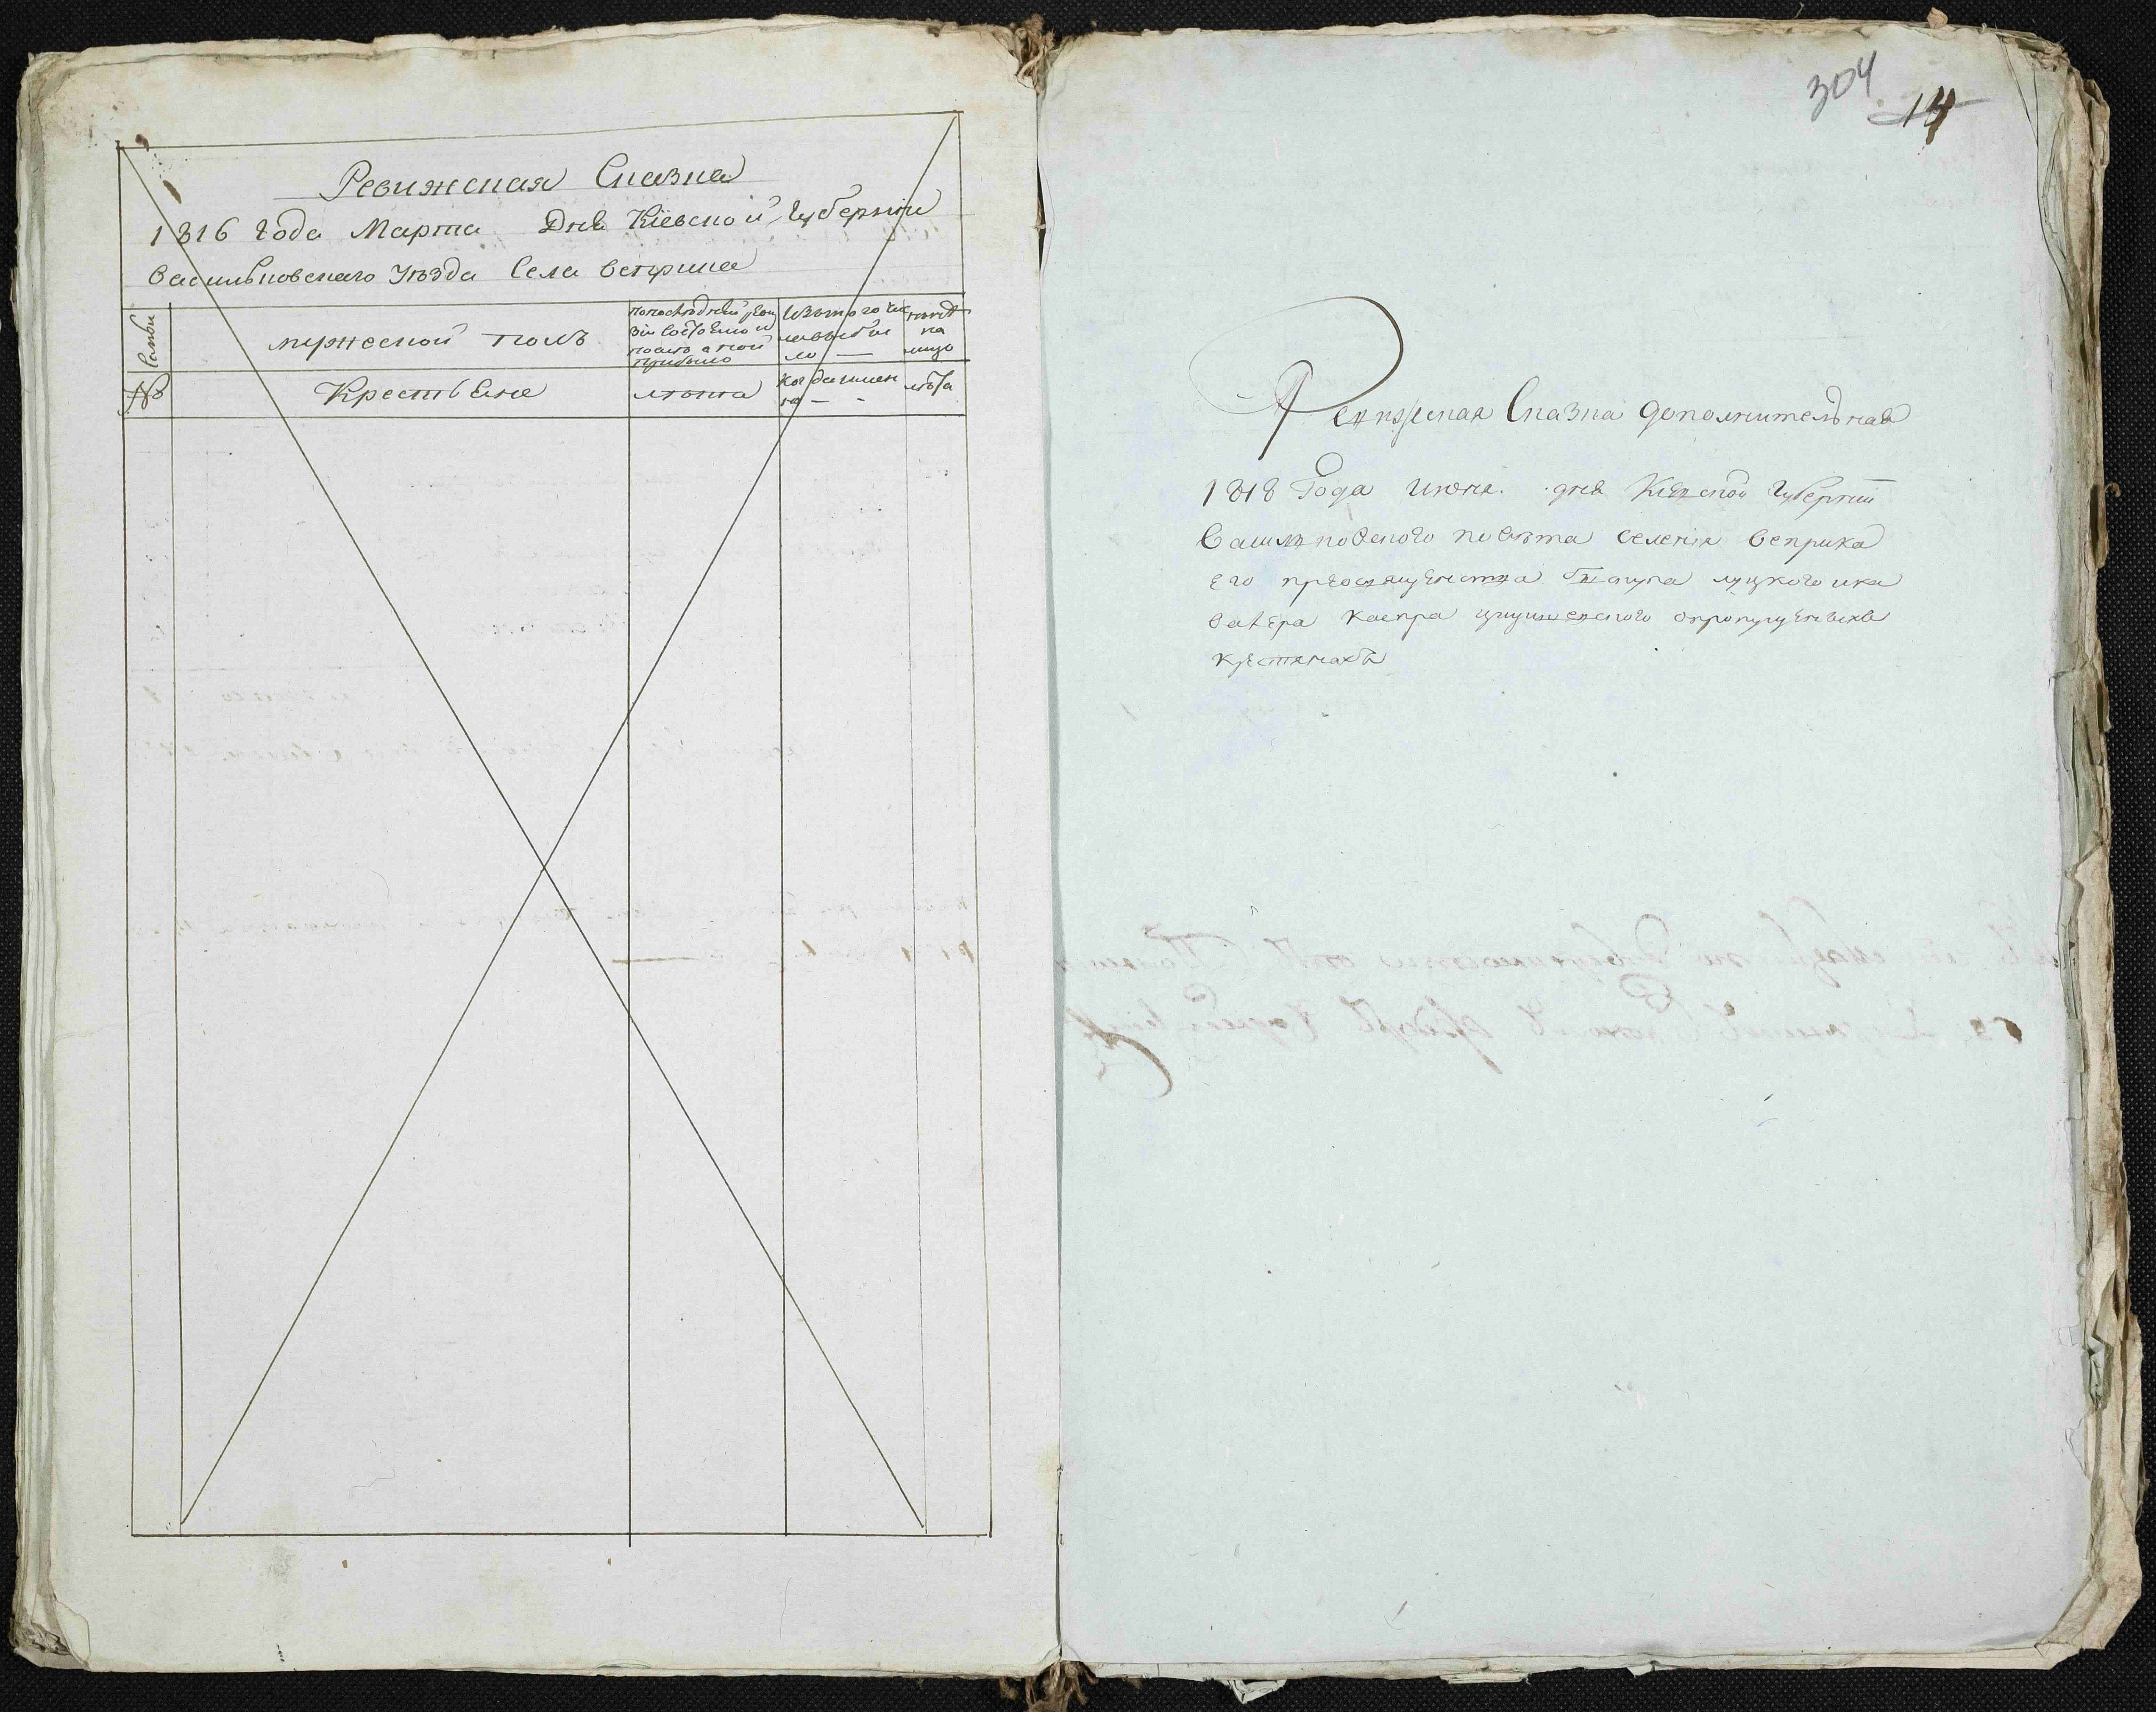 Ревижская Сказка
1816 года Марта Дня Кіевской Губерніи
Васильковскаго Уѣзда Села Веприка
Семьи
мужеской полъ
попоследней реви
зіи состояло и
послѣ оной
прибыло
Изтого чи
славыбы
ло —
нынѣ
на
лицо
№
Крестьяне
лѣта
Когдаимен
но — -
лѣта
304
Ревизская Сказка дополнительная
1818 Года Июня. дня Киевской Губернии
Василковского повѣта селения Веприка
Его преосвященства Бискупа луцкого ика
валера Каспра Цицишевского опропущенныхъ
крестянахъ